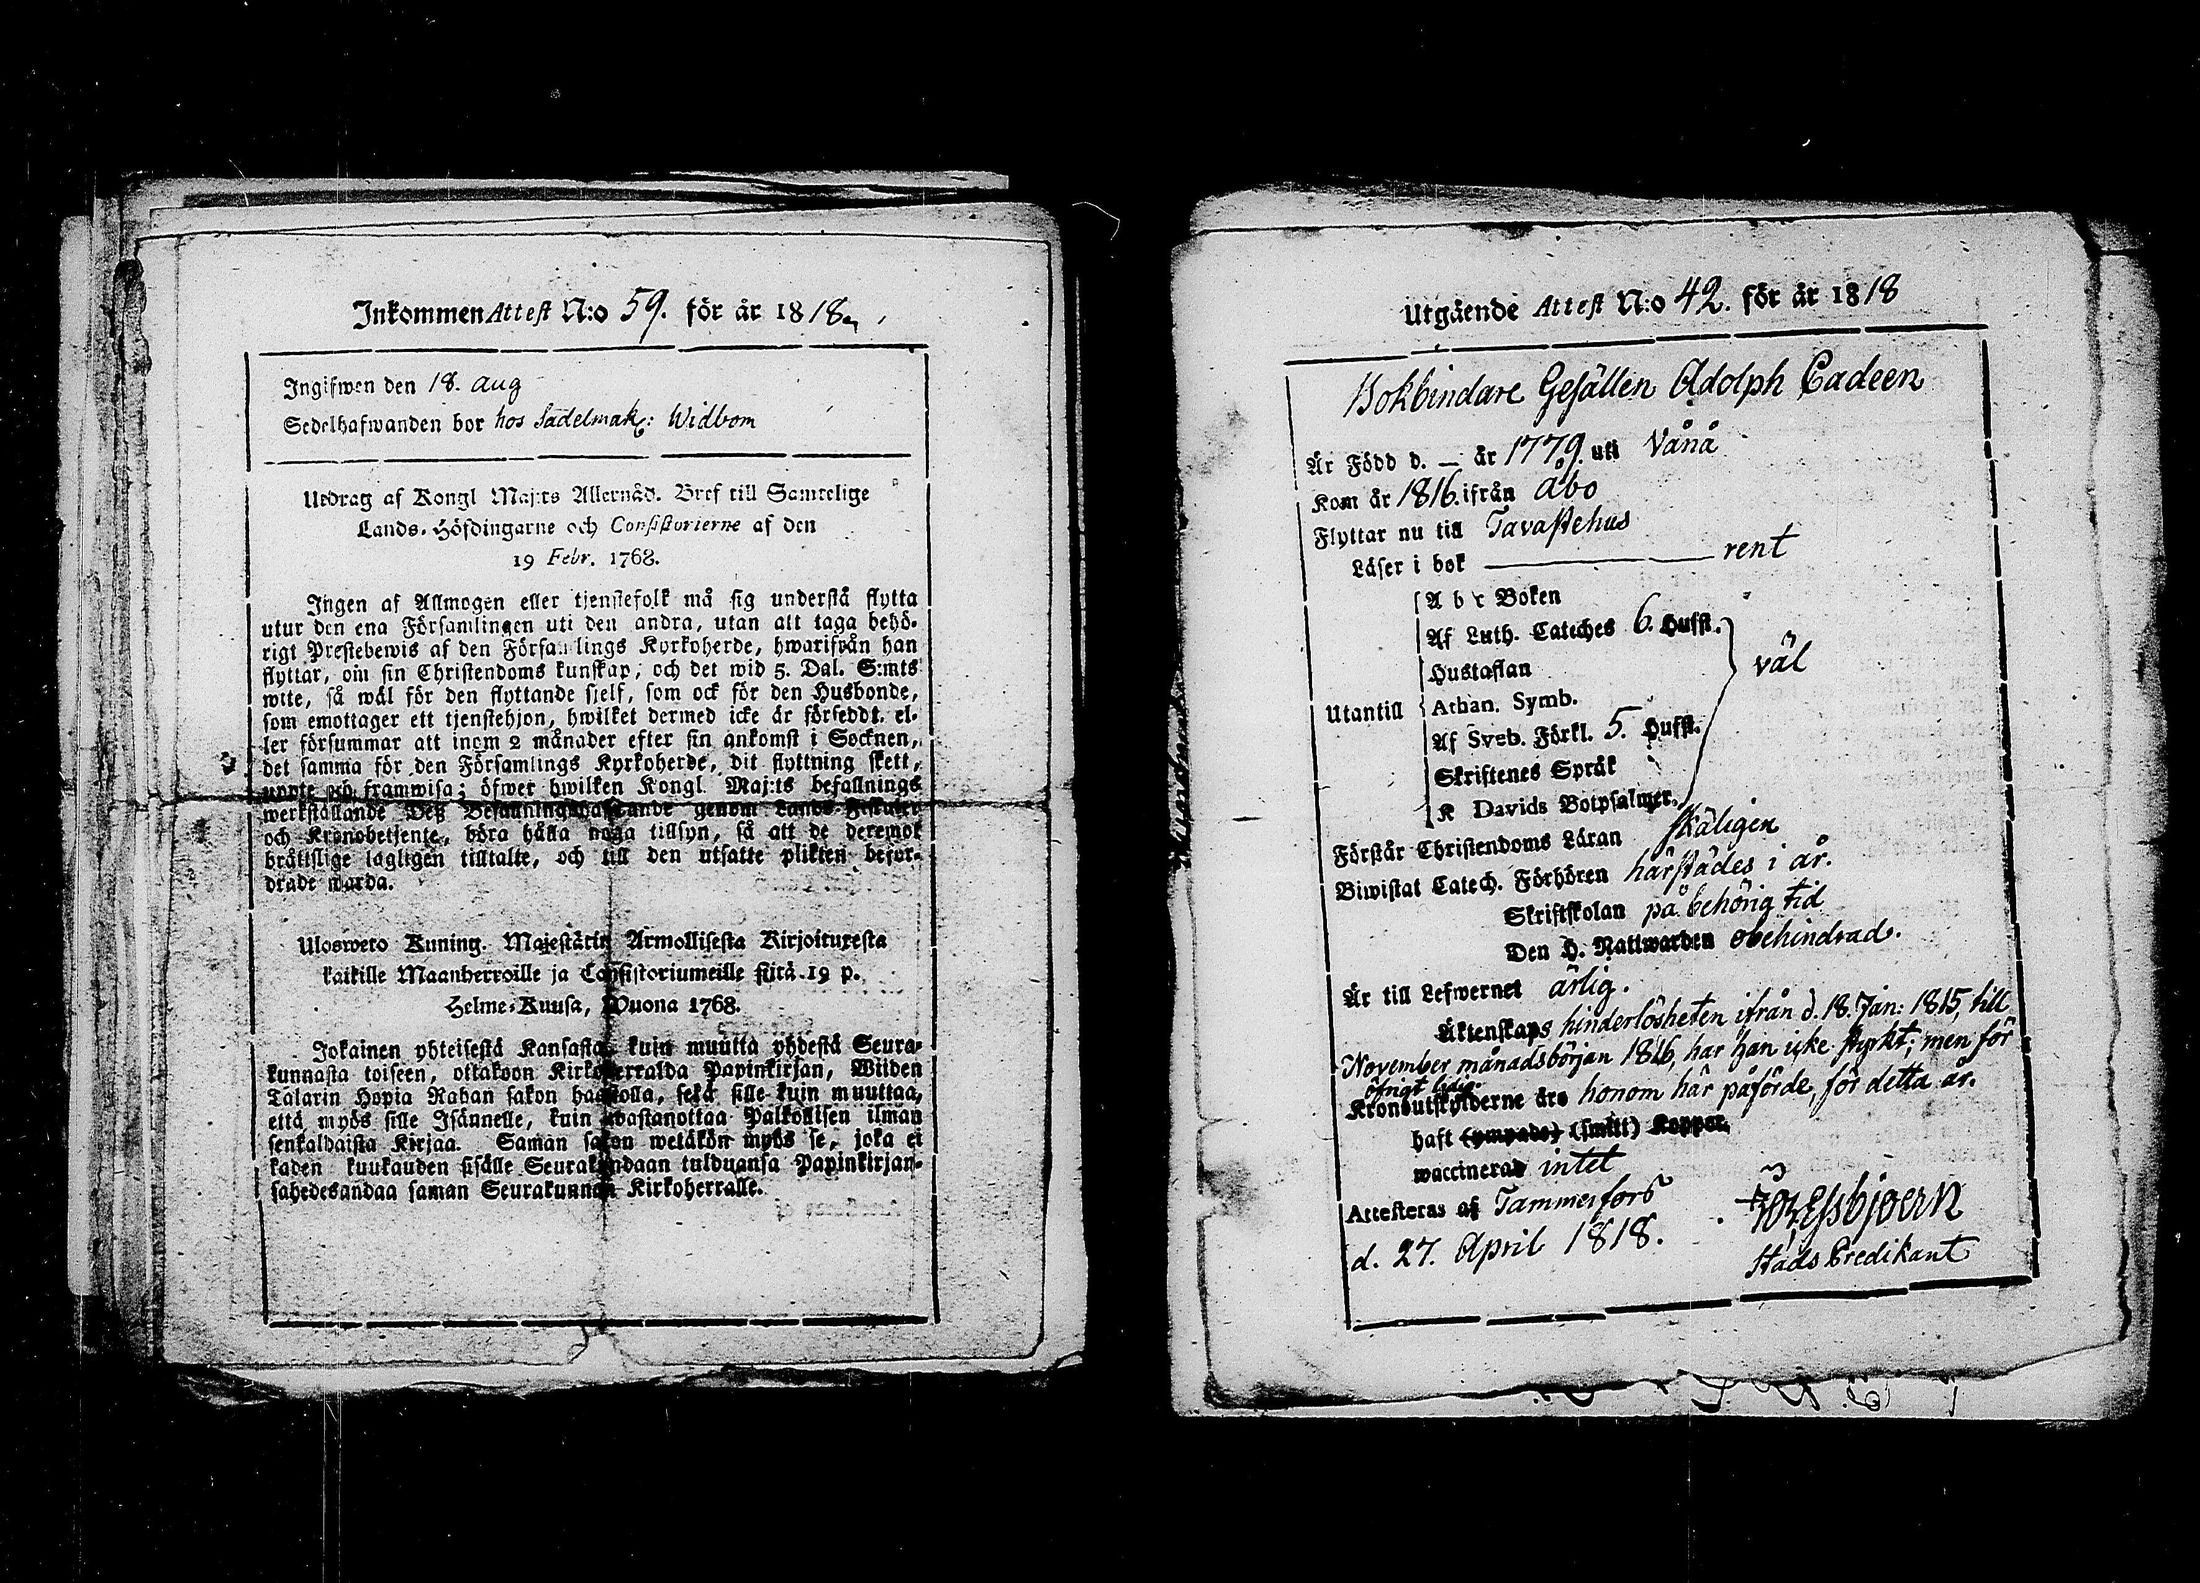 Inkommen Attest N:o 59. för år 1818.
Ingifwen den 18. aug
Sedelhafwanden bor hos Sadelmak: Widbom
Utdrag af Kongl Maj:ts Allernåd. Bref till Samtelige
Lands-Höfdingarne och Consistorierne af den
19 Febr. 1768.
Ingen af Allmogen eller tjenstefolk må sig understå flytta
utur den ena Församlingen uti den andra, utan att taga behö-
rigt Prestebewis af den Församlings Kyrkoherde, hwarifrån han
flyttar, om sin Christendoms kunskap; och det wid 5. Dal. S:mts
wite, så wäl för den flyttande sjelf, som ock för den Husbonde,
som emottager ett tjenstehjon, hwilket dermed icke är försedt, el-
ler försummar att inom 2 månader efter sin ankomst i Socknen,
det samma för den Församlings Kyrkoherde, dit flyttning skett,
uppte och framwisa; öfwer hwilken Kongl. Maj:ts befallnings
werkställande Deß Befallningshafwande genom Lands-Fiskaler
och Kronobetjente, böra hålla noga tillsyn, så att de deremot
brättslige lagligen tilltalte, och till den utsatte plikten befor-
drade warda.
Uloswero Kuning. Majestätin Armollisesta Kirjoituxesta
kaikille Maanherroille ja Consistoriumeille siitä 19 p.
Helme-Kuusa, Wuona 1768.
Jokainen yhteisestä Kansasta, kuin muutta yhdestä Seura-
kunnasta toiseen, ottakoon Kirkoherralda Papinkirjan, Wiiden
Talarin Hopia Rahan sakon haastolla, sekä sille kuin muuttaa,
että myös sille Isännelle, kuin wastanottaa Palkollisen ilman
senkaldaista Kirjaa. Saman sakon wetäkön myös se, joka ei
kaden kuukauden sisälle Seurakundaan tulduansa Papinkirjan-
sahedesandaa saman Seurakunnan Kirkoherralle.
Utgående Attest N:o 42. för år 1818
Bokbindare Gesällen Adolph Cadeen
Är Född d. — år 1779. uti Vånå
Kom år 1816. ifrån Åbo
Flyttar nu till Tavastehus
Läser i bok rent
A b c Boken
Af Luth. Cateches 6. Hufst.
Hustaflan väl
Utantill Athan. Symb.
Af Sveb. Förkl. 5. Hufst.
Skriftenes Språk
K Davids Botpsalmer.
Förstår Christendoms Läran skäligen
Biwistat Catech. Förhören härstädes i år.
Skriftskolan på behörig tid
Den H. Nattwarden obehindrad.
Är till Lefwernet ärlig.
Äktenskaps hinderlösheten ifrån d. 18. Jan: 1815, till
November månadsbörjan 1816, har han icke styrkt; men för
öfrigt ledig.
Kronoutskylderne äro honom här påförde, för detta år.
haft (ympade) (smitt) Koppor,
waccinerad intet
Attesteras af Tammerfors
d. 27. April 1818.
Stads Predikant